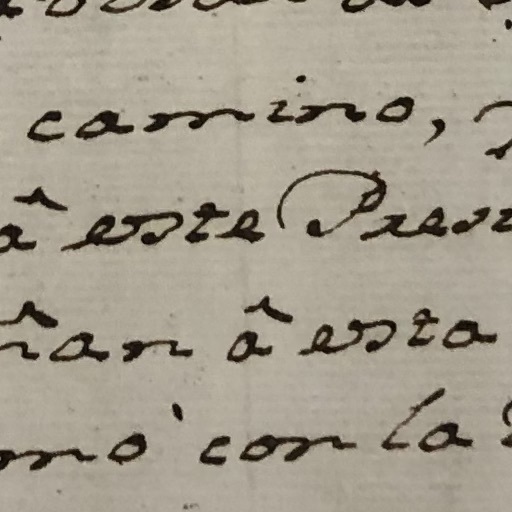 camino,
â este Pres
ñan â esta
mò con la